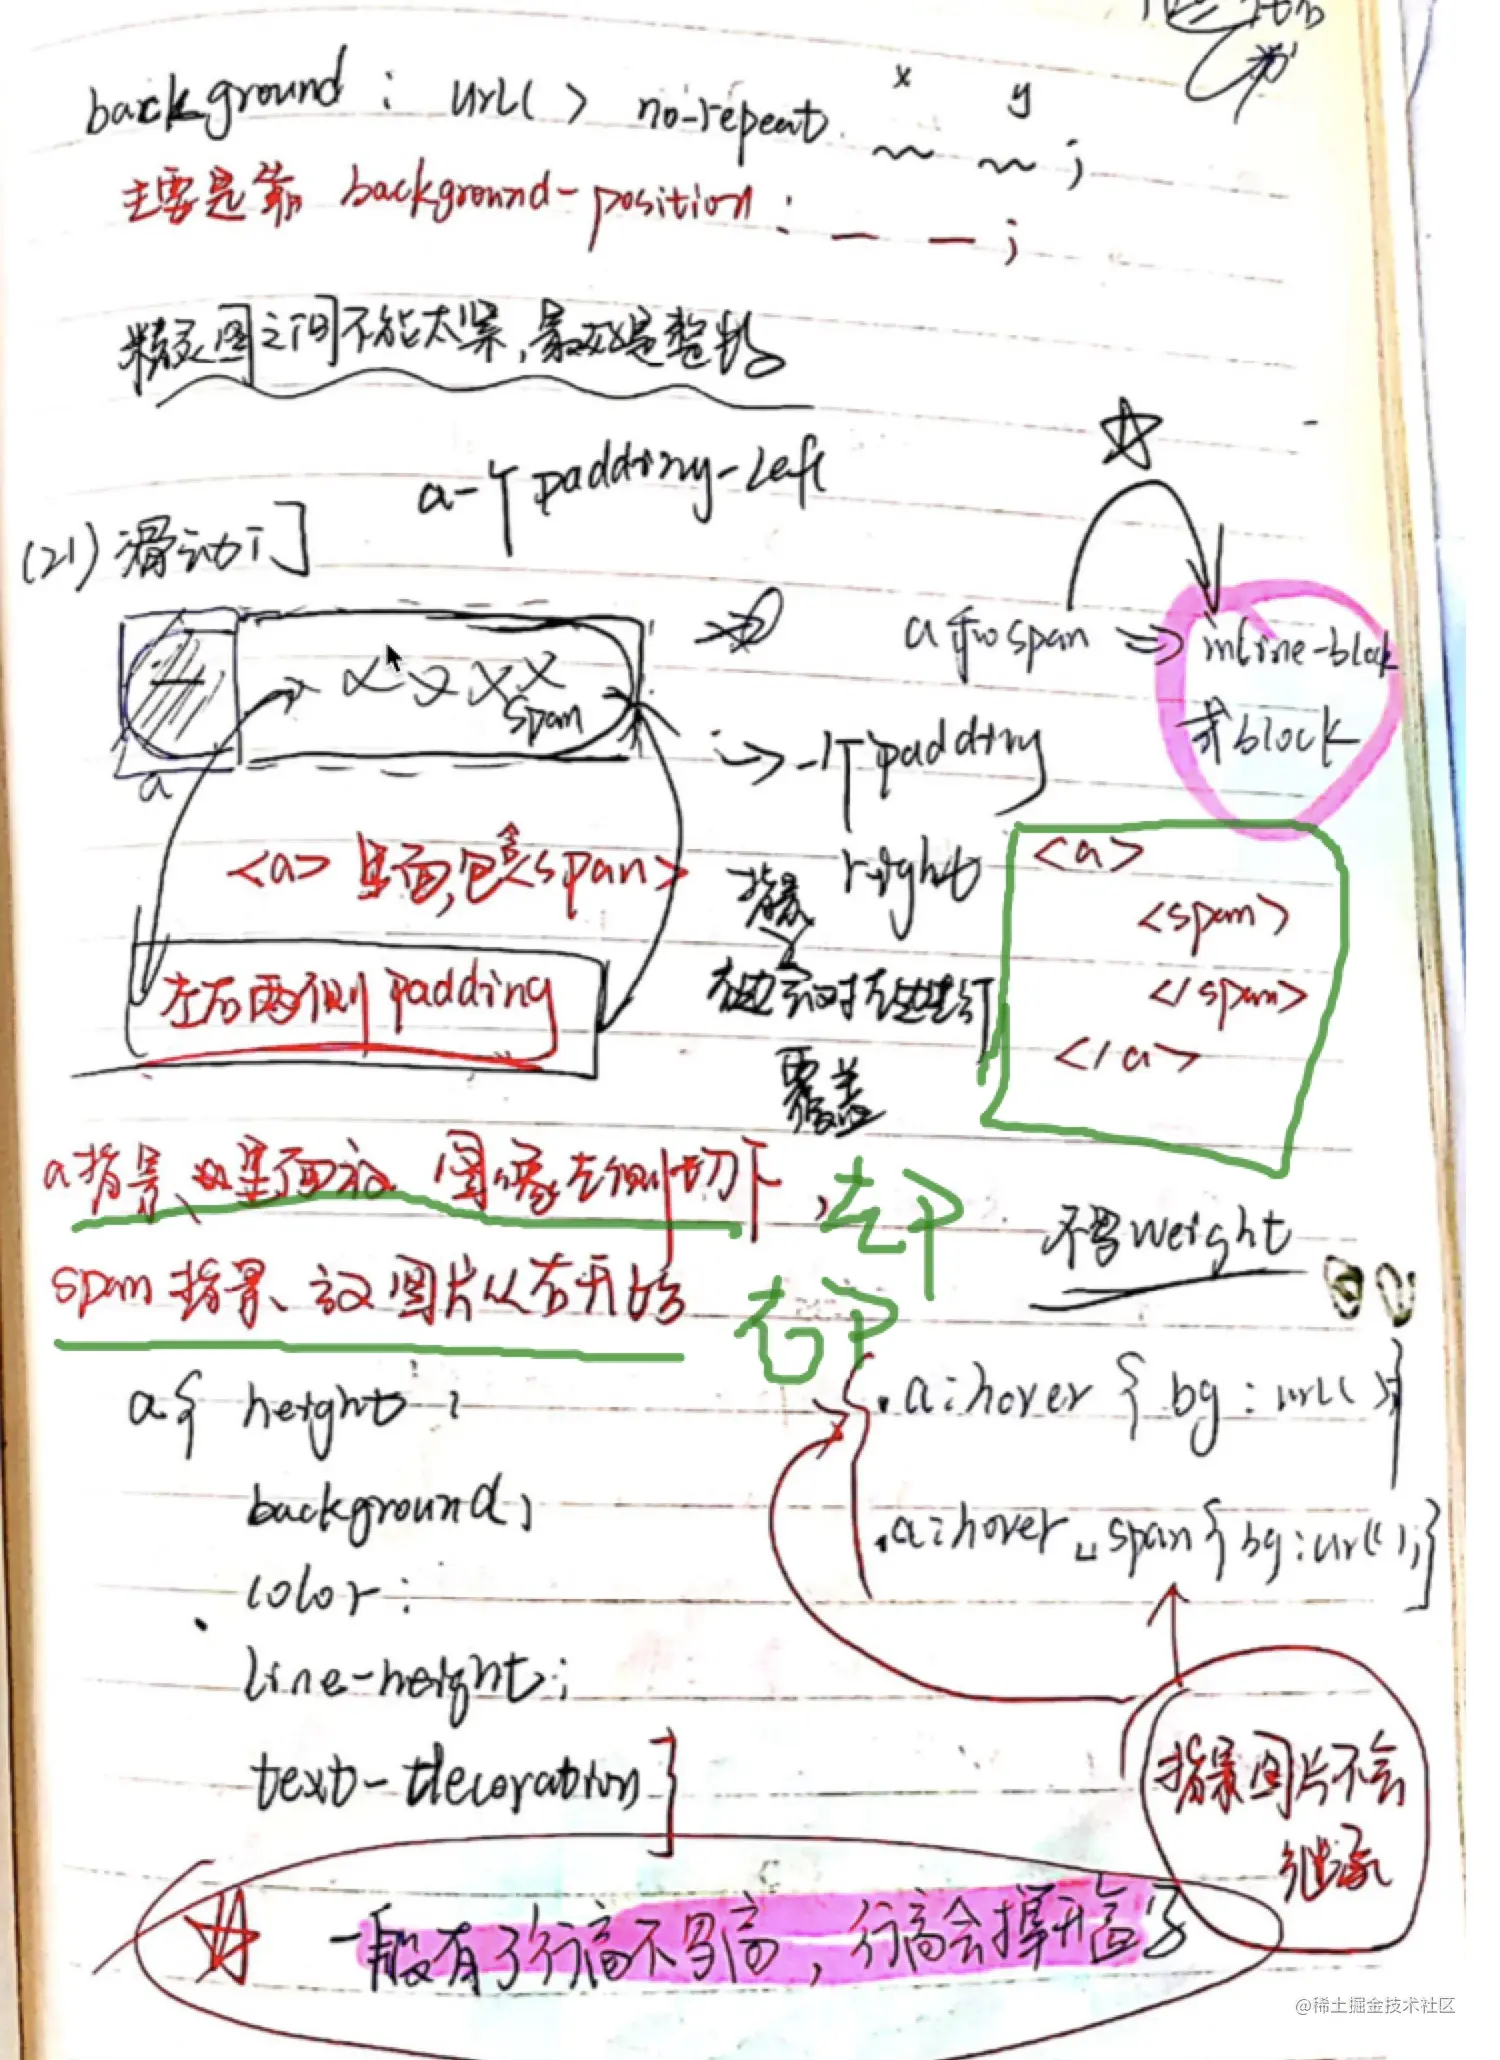 background : url() no-repeat x y ;
主要是靠 background-position: ;
精灵图之间不能太紧,最好是整数
(21) 滑动门
a 一个 padding-left
a 和 span ⇒ inline-block
或 block
span
a
→ 一个 padding
right
<a> 里面,包含<span>
左右两侧 padding
背景
右边会对左边进行
覆盖
<a>
<span>
</span>
</a>
a 背景、里面放 图像左侧切下,左P
span 背景、放图片从右开始 右P
不写 weight
a{ height :
background;
color:
line-height;
text-decoration}
.a:hover { bg:url()}
.a:hover span{bg:url();}
背景图片不会
继承
一般有了行高不写高,行高会撑开盒子
@稀土掘金技术社区